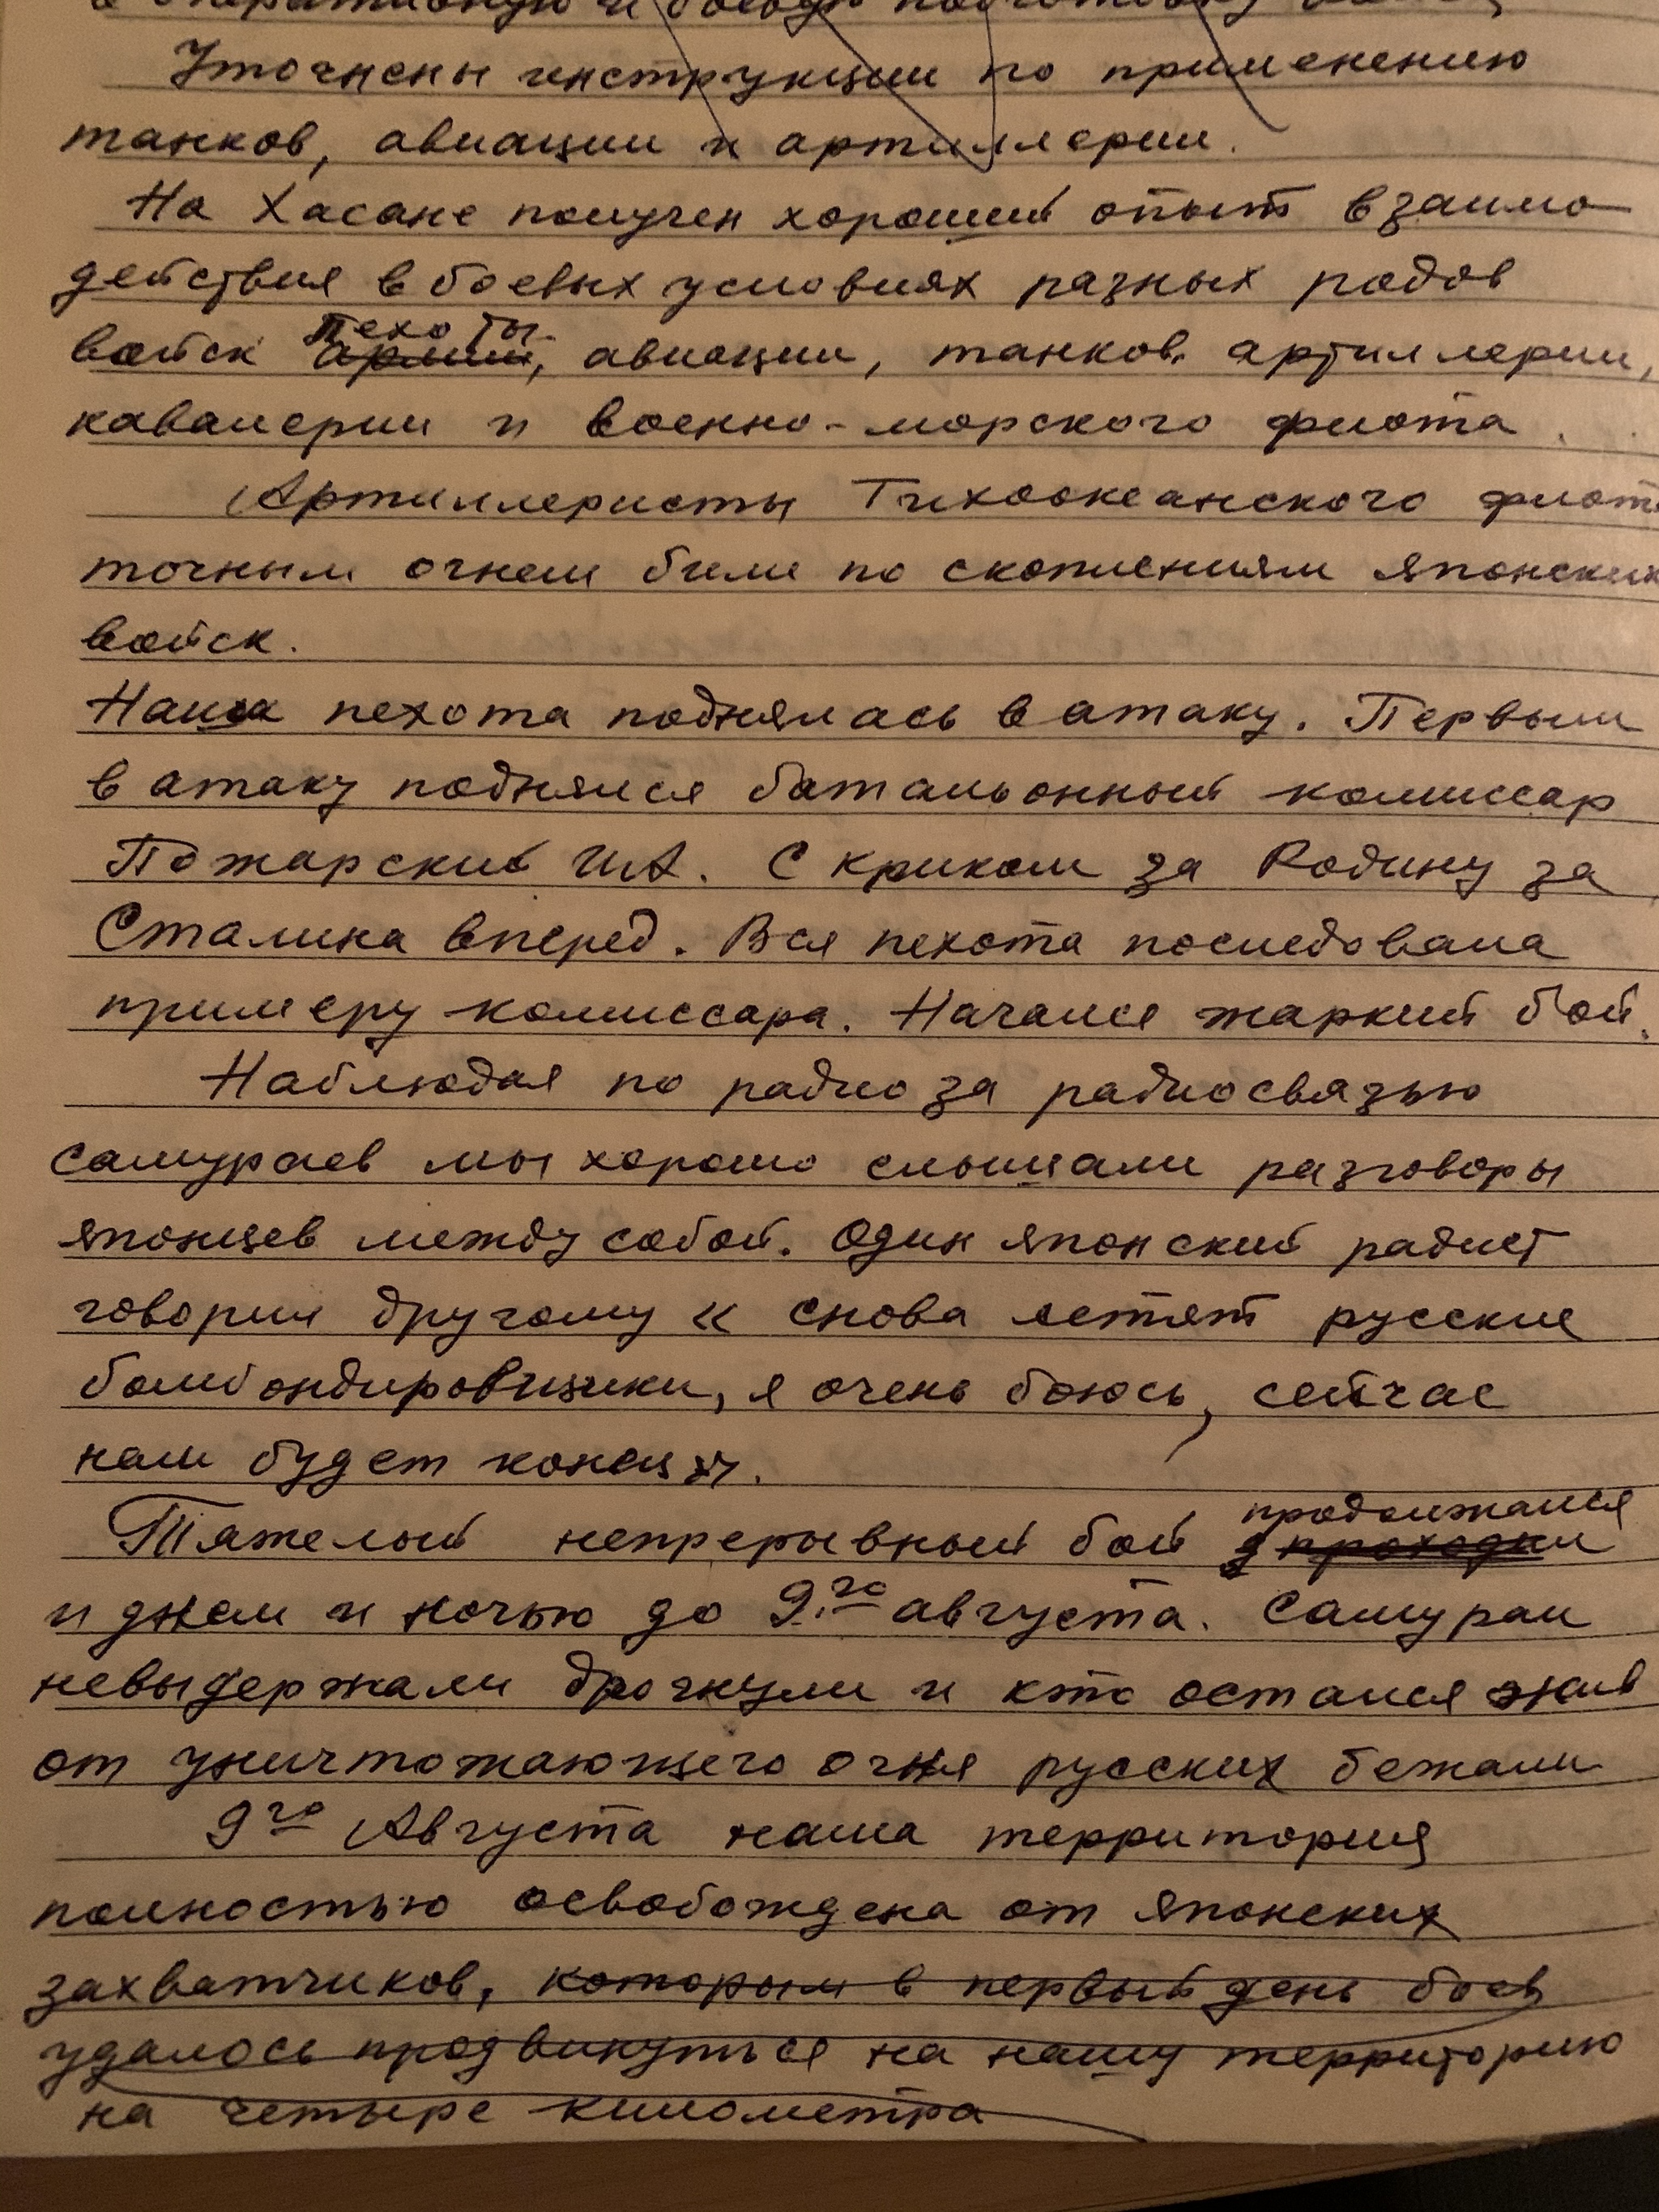 в оперативную и боевую подготовку
Уточнены инструкции по применению
танков, авиации и артиллерии.
На Хасане получен хороший опыт взаимо
действия в боевых условиях разных родов
войск армии, пехоты авиации, танков, артиллерии,
кавалерии и военно-морского флота.
Артиллеристы Тихоокеанского флота
точным огнем били по скоплениям японских
войск.
Наша пехота поднялась в атаку. Первым
в атаку поднялся батальонный комиссар
Пожарский И.А. С криком за Родину за
Сталина вперед. Вся пехота последовала
примеру комиссара. Начался жаркий бой.
Наблюдая по радио за радиосвязью
самураев мы хорошо слышали разговоры
японцев между собой. Один японский радист
говорил другому « снова летят русские
бомбондировщики, я очень боюсь, сейчас
нам будет конец ».
продолжался
Тяжелый непрерывный бой проходил
и днем и ночью до 9.го августа. Самураи
невыдержали дрогнули и кто остался жив
от уничтожающего огня русских бежали
9го Августа наша территория
полностью освобождена от японских
захватчиков, которым в первый день боев
удалось продвинуться на нашу территорию
на четыре километра